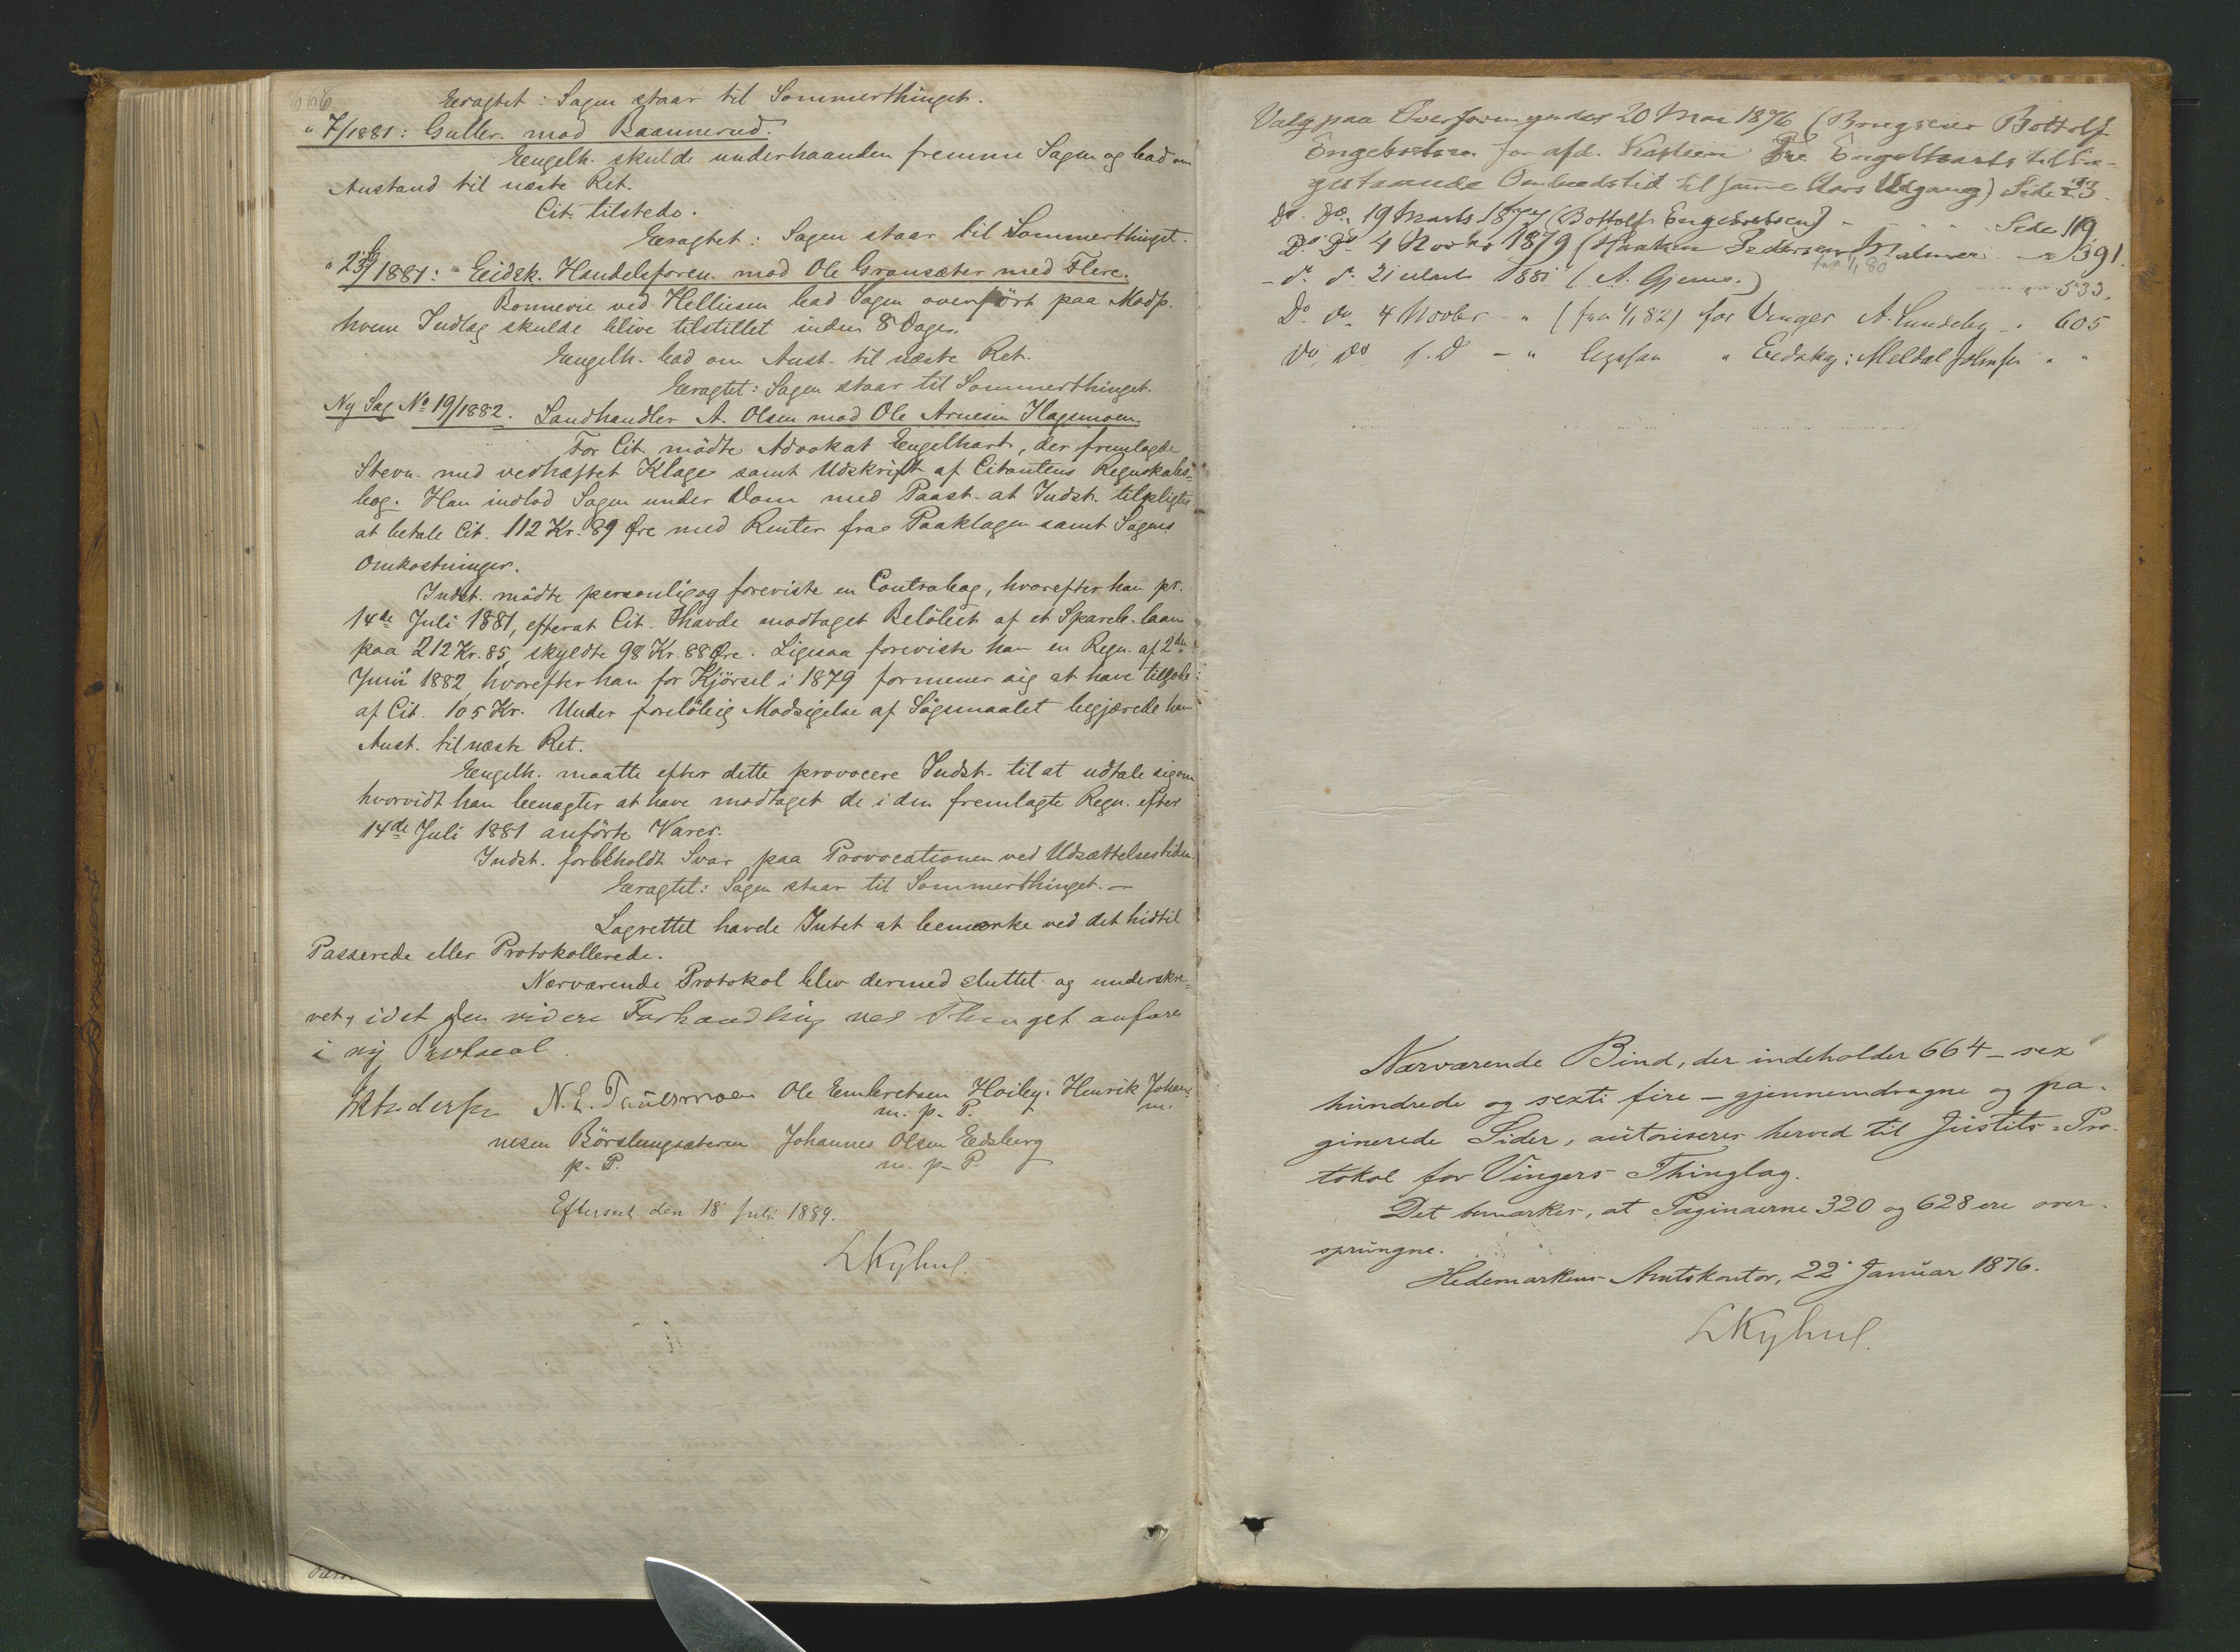 666
Eragtet: Sagen staar til Sommerthinget.
" 7/1881: Guller. mod Baannerud.
Engelh. skulde underhaanden fremme Sagen og bad om
Anstand til næste Ret.
Cit. tilstede.
Eragtet: Sagen staar til Sommerthinget.
" 23/1881: Eidsk. Handelsforen. mod Ole Gransæter med Flere.
Bonnevie ved Helliesen bad Sagen overført paa Modp.
hvem Indlæg skulde blive tilstillet inden 8 Dage.
Engelh. bad om Anst. til næste Ret.
Eragtet: Sagen staar til Sommerthinget.
Ny Sag No 19/1882. Landhandler A. Olsen mod Ole Arnesen Hagsmoen.
For Cit. mødte Advokat Engelhart, der fremlagde
Stevn. med vedhæftet Klage samt Udskrift af Citantens Regnskabs=
bog. Han indlod Sagen under Dom med Paast. at Indst. tilpligtes
at betale Cit. 112 Kr. 89 Øre med Renter fra Paaklagen samt Sagens
Omkostninger.
Indst. mødte personlig og foreviste en Contrabog, hvorefter han pr.
14de Juli 1881, efterat Cit. havde modtaget Beløbet af et Spareb. laan
paa 212 Kr. 85, skyldte 98 Kr. 88 Øre. Ligesaa foreviste han en Regn. af 2den
Juni 1882, hvorefter han for Kjørsel i 1879 formener sig at have tilgode
af Cit. 105 Kr. Under foreløbig Modsigelse af Søgsmaalet begjærede han
Anst. til næste Ret.
Engelh. maatte efter dette provocere Indst. til at udtale sig om
hvorvidt han benægter at have modtaget de i den fremlagte Regn. efter
14de Juli 1881 anførte Varer.
Indst. forbeholdt Svar paa Provocationen ved Udsættelsestiden.
Eragtet: Sagen staar til Sommerthinget. —
Lagrettet havde Intet at bemærke ved det hidtil
Passerede eller Protokollerede.
Nærværende Protokol blev dermed sluttet og underskre=
vet, idet den videre Forhandling ved Thinget anføres
i ny Protocol.
N. E. Ole Embretsen Hoiby. Henrik Johan-
m. p. P. m.
nesen Børslungsæteren Johannes Olsen Edsberg
p. P. m. p. P.
Efterseet den 18 Juli 1889.
LKyhul.
Valg paa Overformynder 20 Mai 1876 (Brugseier Bottolf
Engebretsen for afd. Engelhardts tilba-
gestaaende Ombudstid til samme Aars Udgang) Side 23.
Do. Do. 19 Marts 1877 (Bottolf Engebretsen) - - - Side 119
Do. Do. 4 Novbr 1879 (Haakon Pedersen Malmer - " 391.
fra 1/1 80
- do. do. 21 Marts 1881 (A. Gjems.) - " 533.
Do. do. 4 Novbr - " (fra 1/1 82) for Vinger A. Lundeby - " 605
Do. do. s. D. - " ligesaa " Eidskog: Meldal Johnsen " "
Nærværende Bind, der indeholder 664 - sex
hundrede og sexti fire - gjennemdragne og pa-
ginerede Sider, autoriseres herved til Justits=Pro-
tokol for Vingers Thinglag.
Det bemærkes, at Paginaerne 320 og 628 ere over-
sprungne.
Hedemarkens Amtskontor, 22 Januar 1876.
LKyhul.